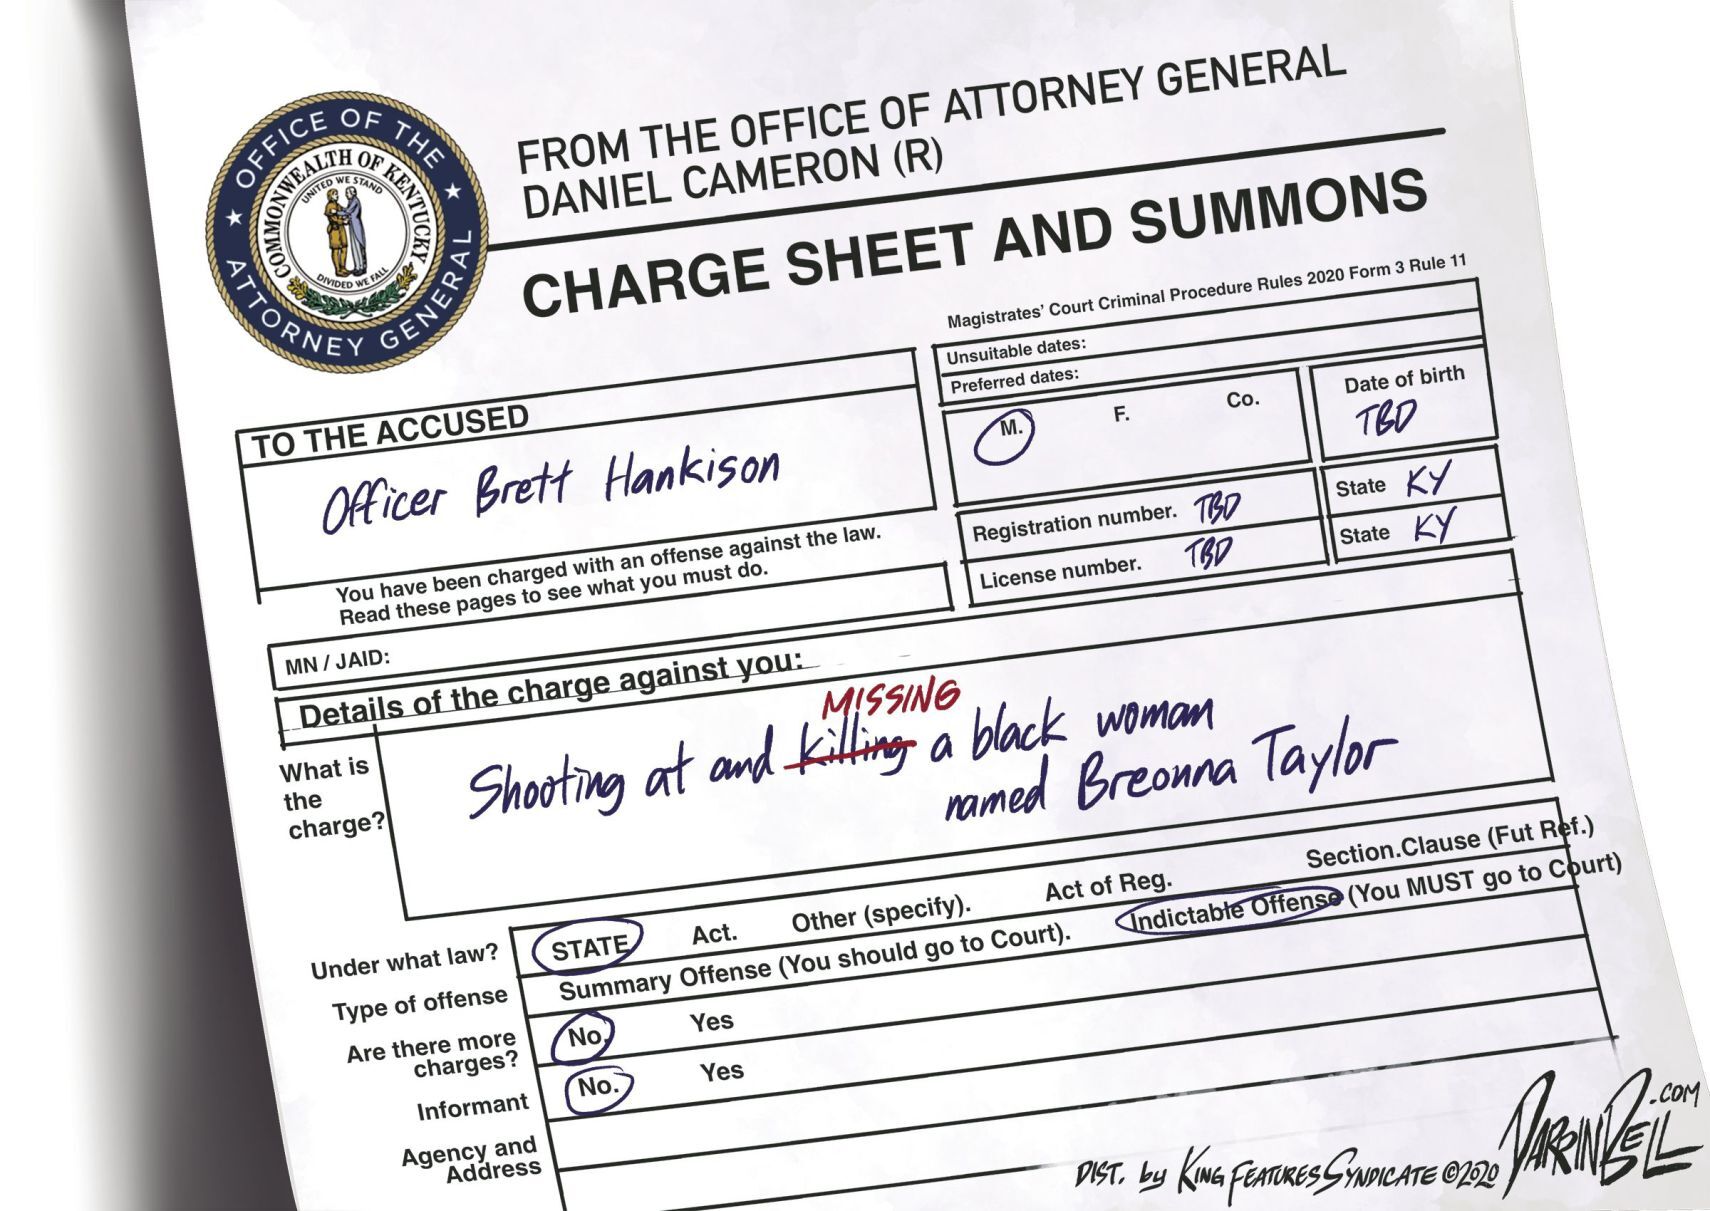 OFFICE OF THE
ATTORNEY GENERAL
COMMONWEALTH OF KENTUCKY
UNITED WE STAND
DIVIDED WE FALL
FROM THE OFFICE OF ATTORNEY GENERAL
DANIEL CAMERON (R)
CHARGE SHEET AND SUMMONS
Magistrates' Court Criminal Procedure Rules 2020 Form 3 Rule 11
Unsuitable dates:
Preferred dates:
M. F. Co.
Date of birth
TBD
TO THE ACCUSED
Officer Brett Hankison
You have been charged with an offense against the law.
Read these pages to see what you must do.
Registration number. TBD
State KY
License number. TBD
State KY
MN / JAID:
Details of the charge against you:
What is
the
charge?
MISSING
Shooting at and killing a black woman
named Breonna Taylor
Under what law? STATE Act. Other (specify). Act of Reg. Section.Clause (Fut Ref.)
Type of offense Summary Offense (You should go to Court). Indictable Offense (You MUST go to Court)
Are there more
charges?
No. Yes
Informant No. Yes
Agency and
Address
DIST. by KING FEATURES SYNDICATE ©2020
DARRINBELL.COM